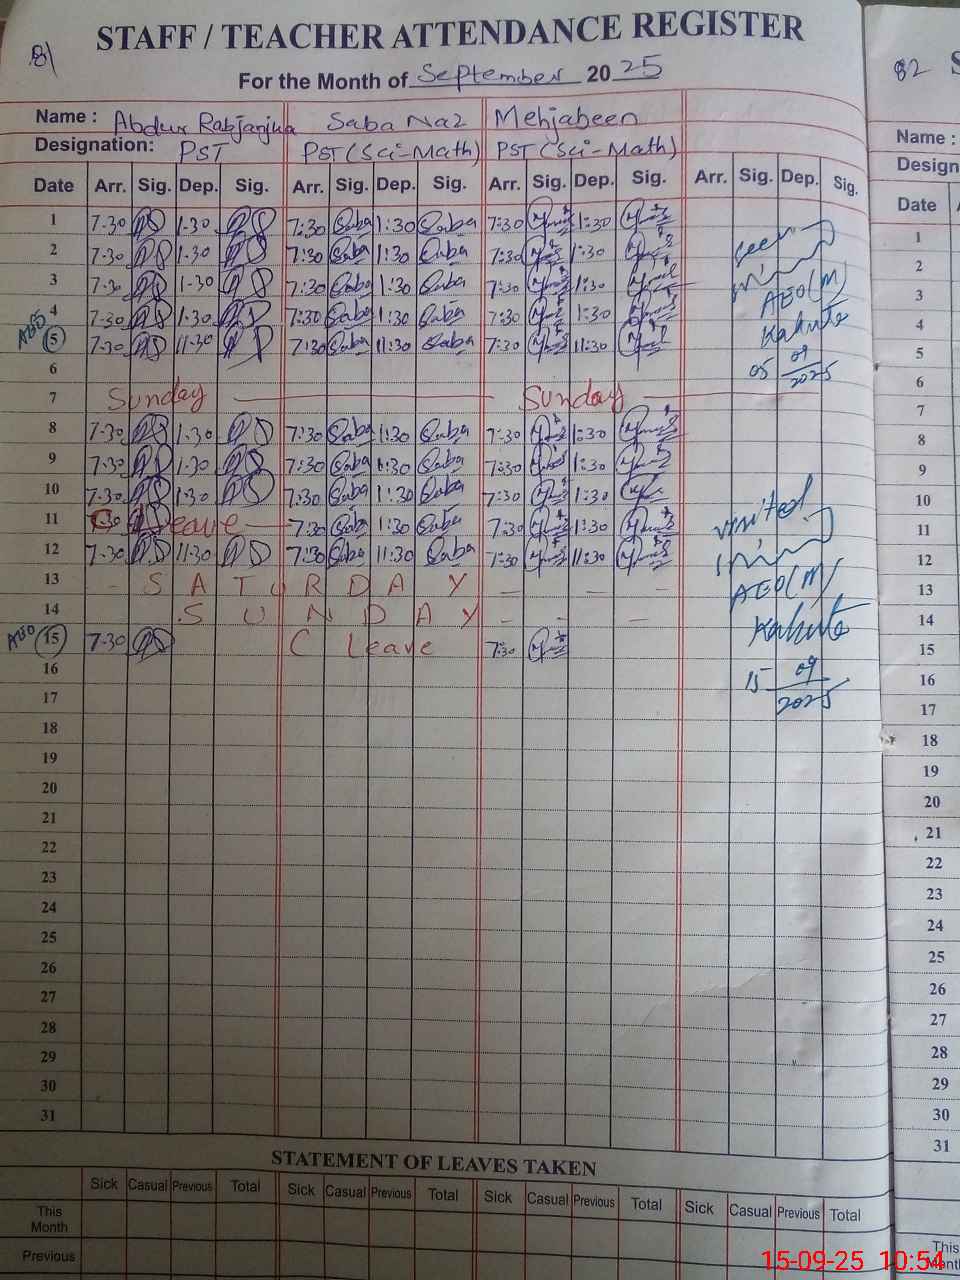 81
STAFF / TEACHER ATTENDANCE REGISTER
For the Month of September 2025
Name : Saba Naz Mehjabeen
Designation: PST PST (Sci-Math) PST (Sci-Math)
Date Arr. Sig. Dep. Sig. Arr. Sig. Dep. Sig. Arr. Sig. Dep. Sig. Arr. Sig. Dep. Sig.
1 7-30 1-30 7:30 Saba 1:30 Saba 7:30 1:30
2 7-30 1-30 7:30 Saba 1:30 Saba 7:30 1:30
3 7-30 1-30 7:30 Saba 1:30 Saba 7:30 1:30 AEO(M)
4 7-30 1-30 7:30 Saba 1:30 Saba 7:30 1:30 Kahuta
AEO 5 7-30 11-30 7:30 Saba 11:30 Saba 7:30 11:30 05 09 2025
6
7 Sunday Sunday
8 7-30 1-30 7:30 Saba 1:30 Saba 7:30 1:30
9 7-30 1-30 7:30 Saba 1:30 Saba 7:30 1:30
10 7-30 1-30 7:30 Saba 1:30 Saba 7:30 1:30 visited
11 Leave 7:30 Saba 1:30 Saba 7:30 1:30
12 7-30 11-30 7:30 Saba 11:30 Saba 7:30 11:30
13 SATURDAY AEO(M)
14 SUNDAY Kahuta
AEO 15 7-30 C Leave 7:30
16 15 09 2025
17
18
19
20
21
22
23
24
25
26
27
28
29
30
31
STATEMENT OF LEAVES TAKEN
Sick Casual Previous Total Sick Casual Previous Total Sick Casual Previous Total Sick Casual Previous Total
This Month
Previous
82
Name :
Date
1
2
3
4
5
6
7
8
9
10
11
12
13
14
15
16
17
18
19
20
21
22
23
24
25
26
27
28
29
30
31
This
15-09-25 10:54